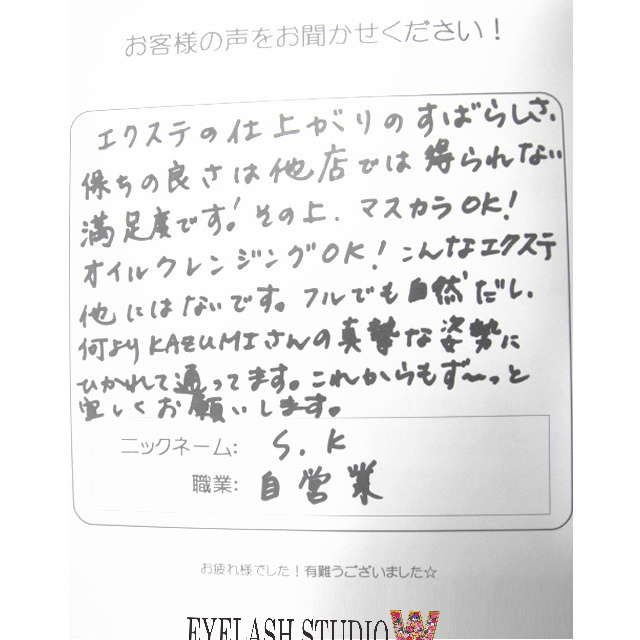 お客様の声をお聞かせください！
エクステの仕上がりのすばらしさ、
保ちの良さは他店では得られない
満足度です！その上、マスカラOK！
オイルクレンジングOK！こんなエクステ
他にはないです。フルでも自然だし、
何よりKAZUMIさんの真摯な姿勢に
ひかれて通ってます。これからもず〜っと
宜しくお願いします。
ニックネーム: S.K
職業: 自営業
お疲れ様でした！有難うございました☆
EYELASH STUDIO W